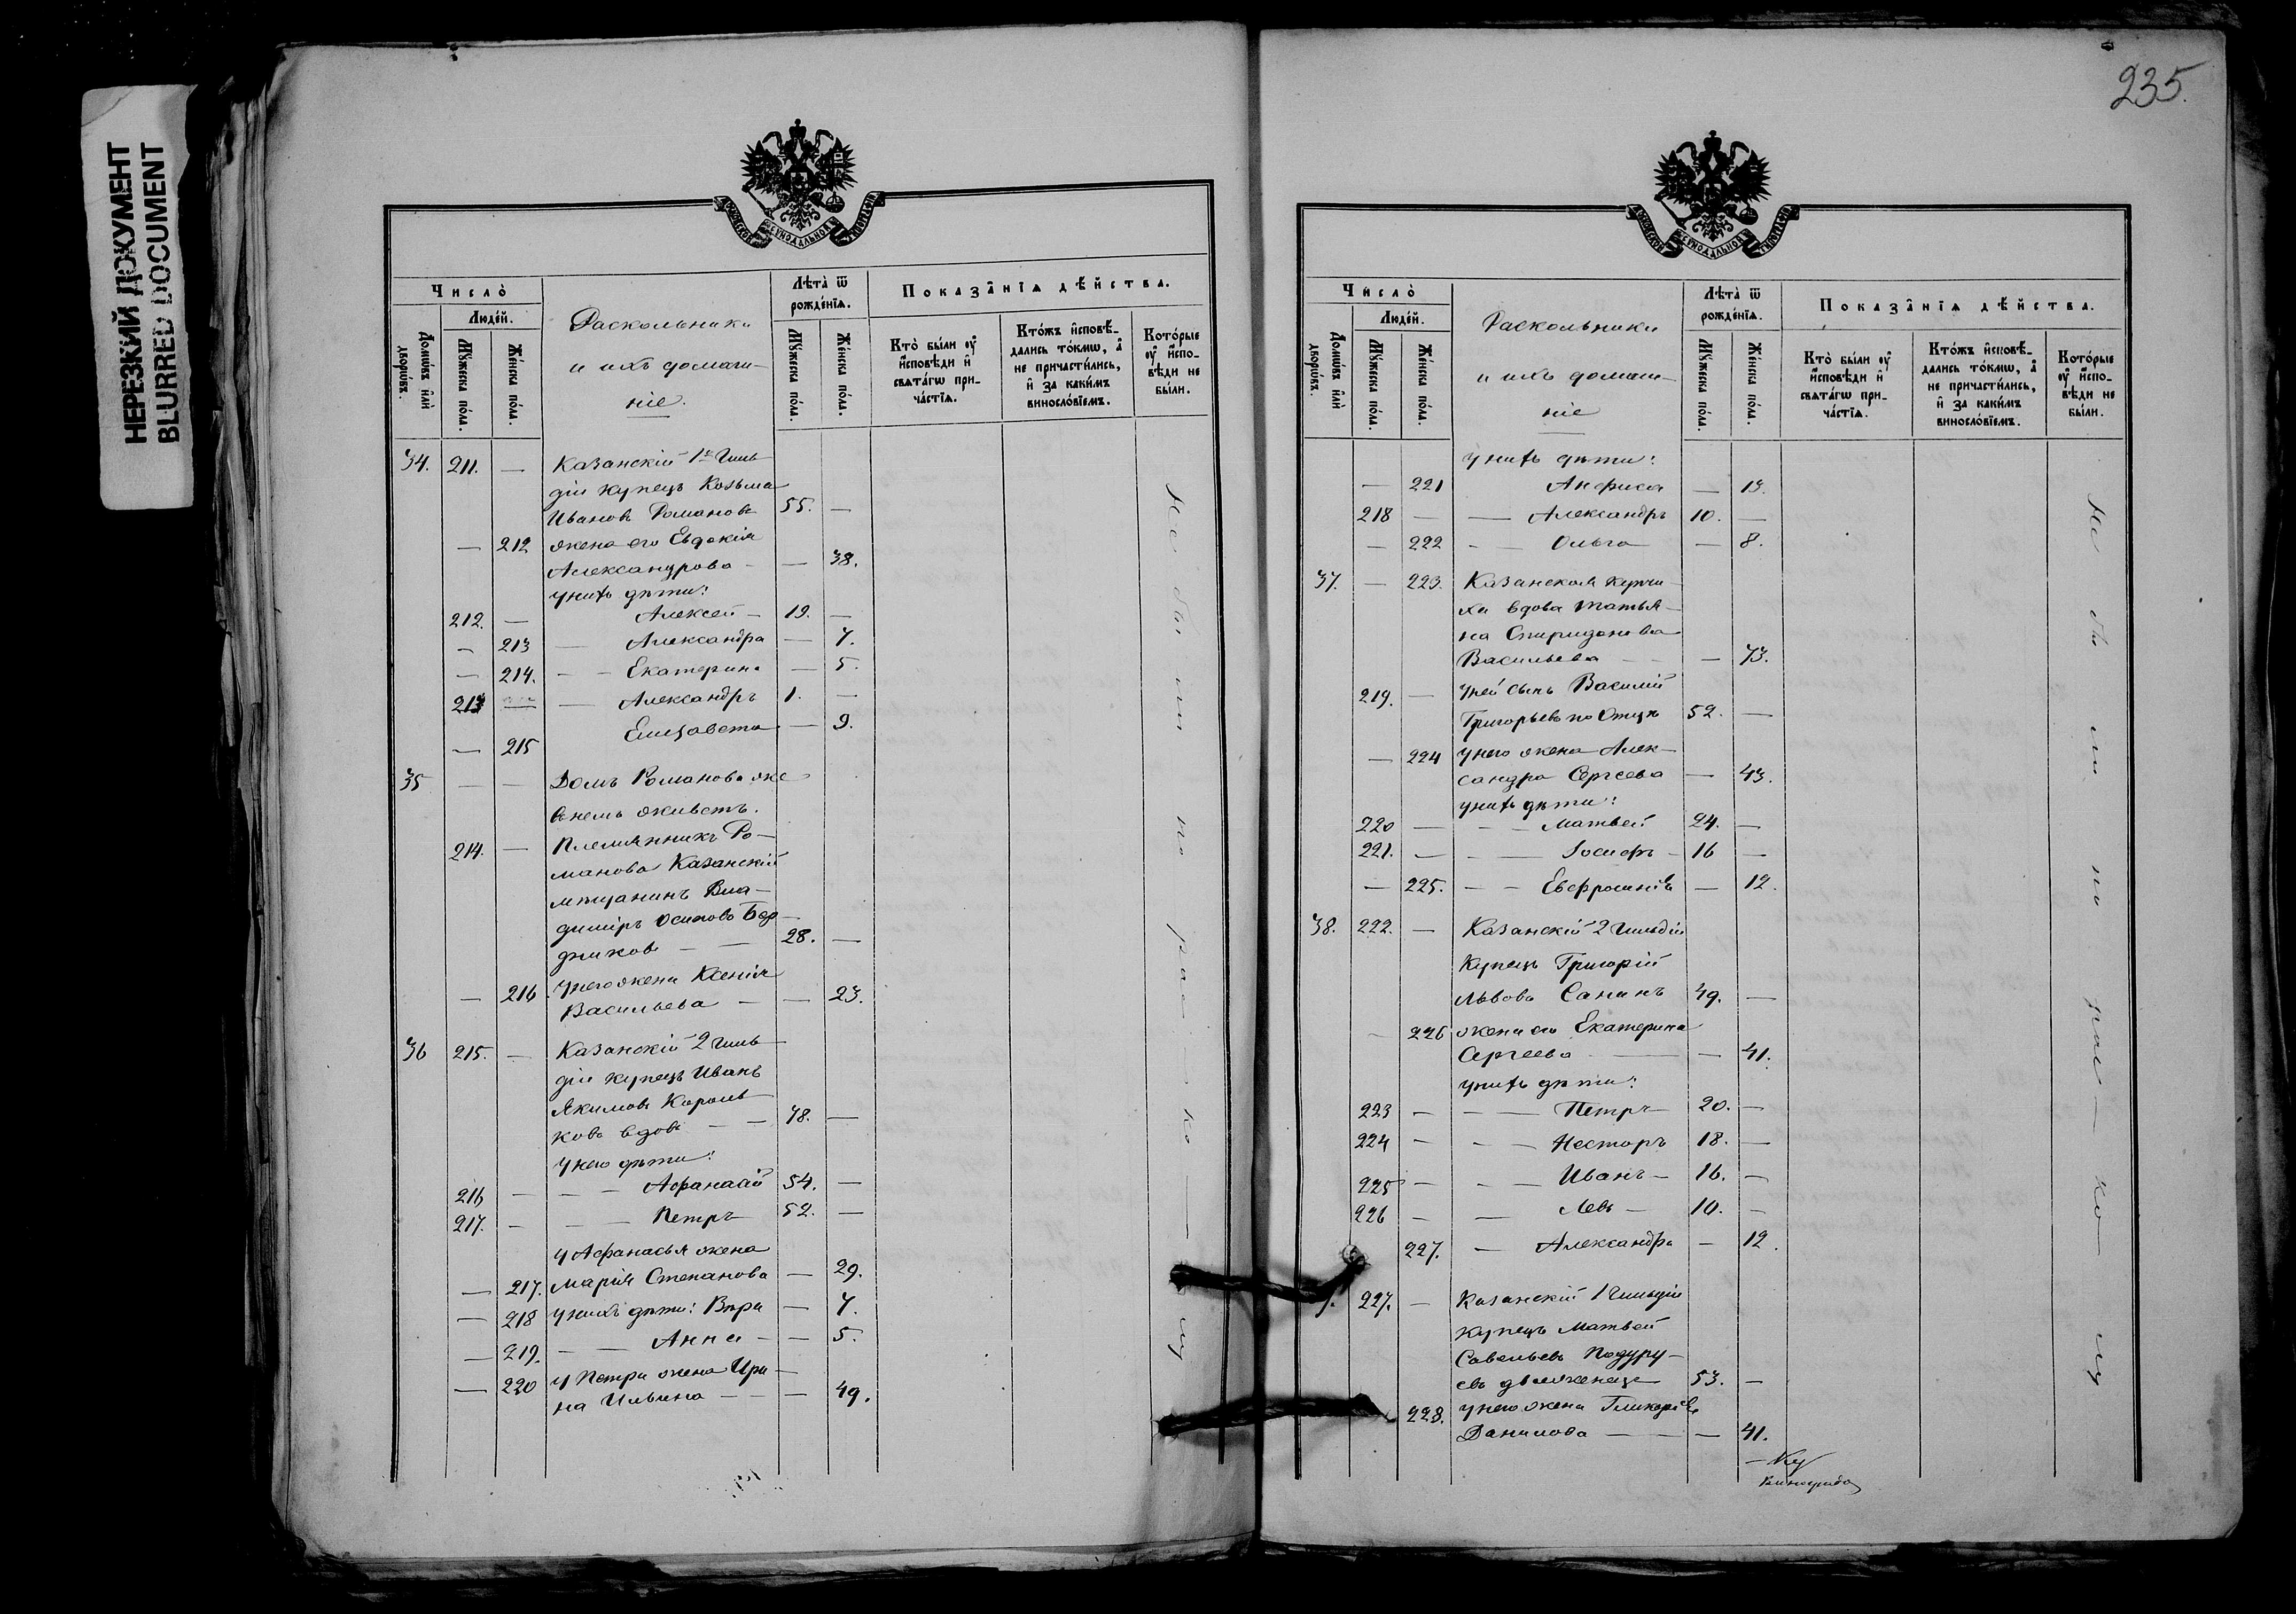 НЕРЕЗКИЙ ДОКУМЕНТ
BLURRED DOCUMENT
МОСКОВСКОЙ СѴНОДАЛЬНОЙ ТИПОГРАФІИ
Число̀
Люде́й.
Домѡ́въ и҆лѝ дворѡ́въ.
Мꙋ́жеска по́ла.
Же́нска по́ла.
Раскольники
и ихъ домаш-
ніе.
Лѣ́та ѿ рожде́нїѧ.
Мꙋ́жеска по́ла.
Же́нска по́ла.
Показа̑нїѧ дѣ́йства.
Кто̀ бы́ли ᲂу҆ и҆сповѣди и҆ свѧта́гѡ при-ча́стїѧ.
Кто́жъ и҆сповѣ́-дались то́кмѡ, а҆ не причасти́лись, и҆ за каки́мъ винословїемъ.
Кото́рые ᲂу҆ и҆спо-вѣди не бы́ли.
34. 211. — Казанскій 1й Гиль-
діи купецъ Козьма
Ивановъ Романовъ 55. —
— 212 жена его Евдокія
Александрова — — 38.
у нихъ дѣти:
212. — Алексей — 19. —
— 213 — Александра — 7.
— 214. — — Екатерина — 5.
213 — — Александръ 1. —
— 215 Елизавета — 9.
35 — — Домъ Романова же
въ немъ живетъ.
214. — Племянникъ Ро-
манова Казанскій
мѣщанинъ Вла-
диміръ Осиповъ Бор-
дниковъ — — 28. —
— 216 У него жена Ксенія
Васильева — — 23.
36 215. — Казанскій 2 Гиль-
діи купецъ Иванъ
Якимовъ Король-
ковъ вдовъ — — 78. —
У него дѣти:
216 — — — Афанасій 54. —
217. — — — Петръ 52. —
у Афанасья жена
— 217. Марія Степанова — 29.
— 218 У нихъ дѣти: Вѣра — 7.
— 219. — — Анна — — 5.
— 220 у Петра жена Ири-
на Ильина — — — 49.
Не были по рас-ко-лу
235.
Число̀
Люде́й.
Домѡ́въ и҆лѝ дворѡ́въ.
Мꙋ́жеска по́ла.
Же́нска по́ла.
Раскольники
и ихъ домаш-
ніе
Лѣ́та ѿ рожде́нїѧ.
Мꙋ́жеска по́ла.
Же́нска по́ла.
Показа̑нїѧ дѣ́йства.
Кто̀ бы́ли ᲂу҆ и҆сповѣди и҆ свѧта́гѡ при-ча́стїѧ.
Кто́жъ и҆сповѣ́-дались то́кмѡ, а҆ не причасти́лись, и҆ за каки́мъ винословїемъ.
Кото́рые ᲂу҆ и҆спо-вѣди не бы́ли.
у нихъ дѣти:
— 221 Анфиса — 13.
218 — — Александръ 10. —
— 222 - — Ольга — 8.
37. — 223. Казанская купчи-
ха вдова Татья-
на Спиридонова
Васильева — — 73.
219. — У ней сынъ Василій
Григорьевъ по отцѣ 52. —
— 224 У него жена Алек-
сандра Сергеева — 43.
у нихъ дѣти:
220 — — — Матвей 24. —
221. — — — Іосифъ — 16 —
— 225. — — Евфросинія — 12.
38. 222. — Казанскій 2 Гильдіи
Купецъ Григорій
Львовъ Санинъ 49. —
— 226 жена его Екатерина
Сергеева — — 41.
у нихъ дѣти:
223 — — — Петръ 20. —
224 — — — Несторъ 18. —
225 — — — Иванъ — 16. —
226 — — Левъ — 10. —
227. — Александра — 12.
227. — Казанскій 1 Гильдіи
купецъ Матвей
Савельевъ Подуру-
евъ 53. —
228. У него жена Гликерія
Данилова — — — 41.
Не были по рас-ко-лу